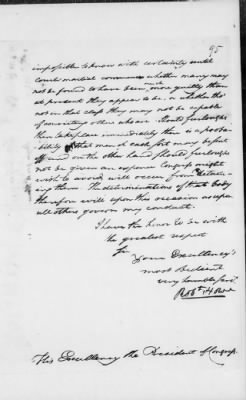 95
impossible to know with certainty until
Court martial commences whether many may
not be found to have been much more guilty than
at present they appear to be, or whether those
not in that class they may not be capable
of convicting others who are. Should furloughs
then take place immediately there is a proba-
bility that men of each sort may benefit
and on the other hand should furloughs
not be given an expence Congress might
wish to avoid will occur from detain-
ing them. The determinations of that body
therefore will upon this occasion as upon
all others govern my conduct.
I have the honor to be with
the greatest respect
Sir
Your Excellency's
most Obedient
very humble Servt
Robt Howe
His Excellency the President of Congress.